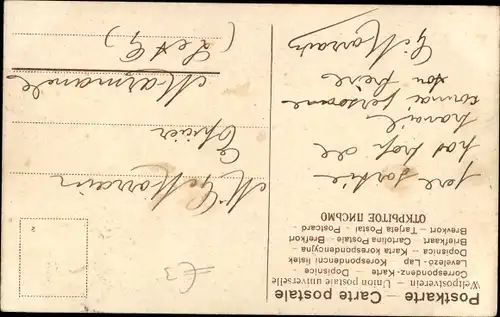 Postkarte — Carte postale
Weltpostverein — Union postale universelle
Correspondenz-Karte - Dopisnice -
Levelező - Lap - Korespondencni listek
Dopisnica - Karta korespondencyjna
Briefkaart - Cartolina Postale - Brefkort
Brevkort - Tarjeta Postal - Postcard -
ОТКРЫТОЕ ПИСЬМО
pas trop de
travail
personne
ton frère
G Marrain
M G Marrain
Epicier
Marmande
(L et G)
£3